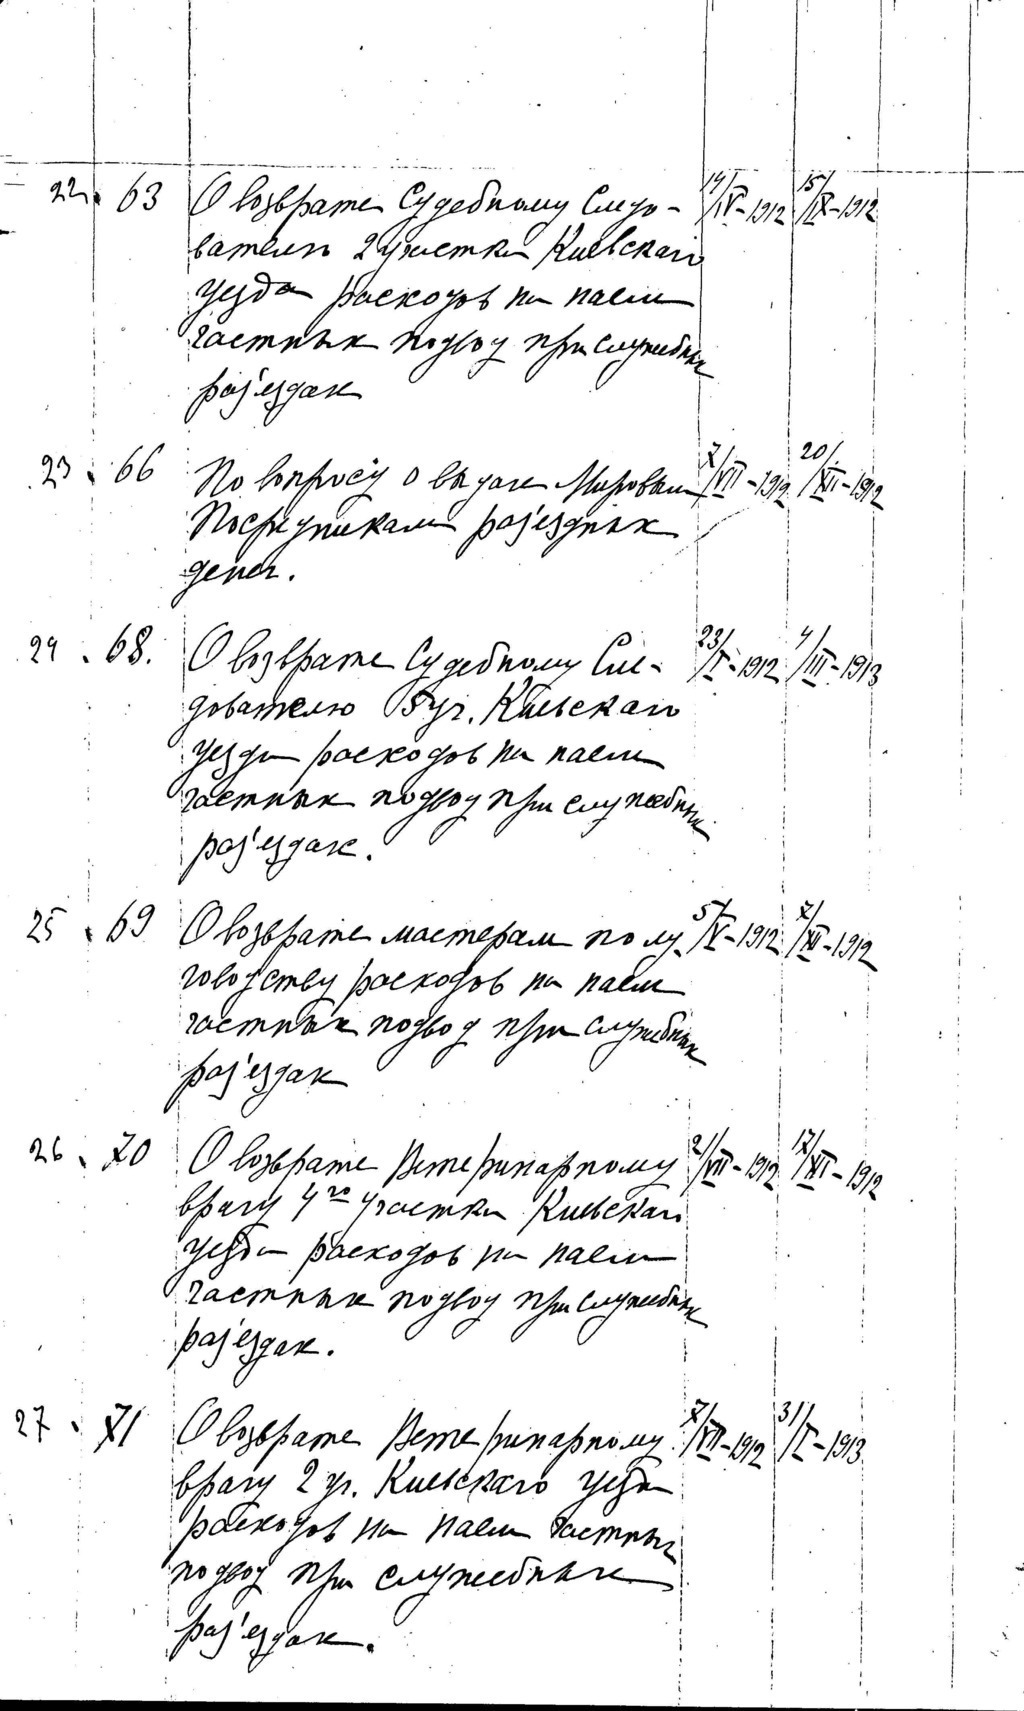 22. 63 О возврате Судебному Следо- 14/IV-1912 15/IX-1912
вателю 2 участка Киевскаго
уезда расходов на наем
частных подвод при служебных
раз'ездах
23. 66 По вопросу о выдаче Мировым 7/VII-1912 20/XII-1912
Посредникам раз'ездных
денег.
24. 68. О возврате Судебному Сле- 23/I-1912 4/III-1913
дователю 5 уч. Киевскаго
уезда расходов на наем
частных подвод при служебных
раз'ездах.
25. 69 О возврате мастерам по лу- 5/V-1912 7/XII-1912
говодству расходов на наем
частных подвод при служебных
раз'ездах
26. 70 О возврате Ветеринарному 2/VII-1912 17/XI-1912
врачу 4го участка Киевскаго
уезда расходов на наем
частных подвод при служебных
раз'ездах.
27. 71 О возврате Ветеринарному 7/VII-1912 31/I-1913
врачу 2 уч. Киевскаго уезда
расходов на наем частных
подвод при служебных
раз'ездах.